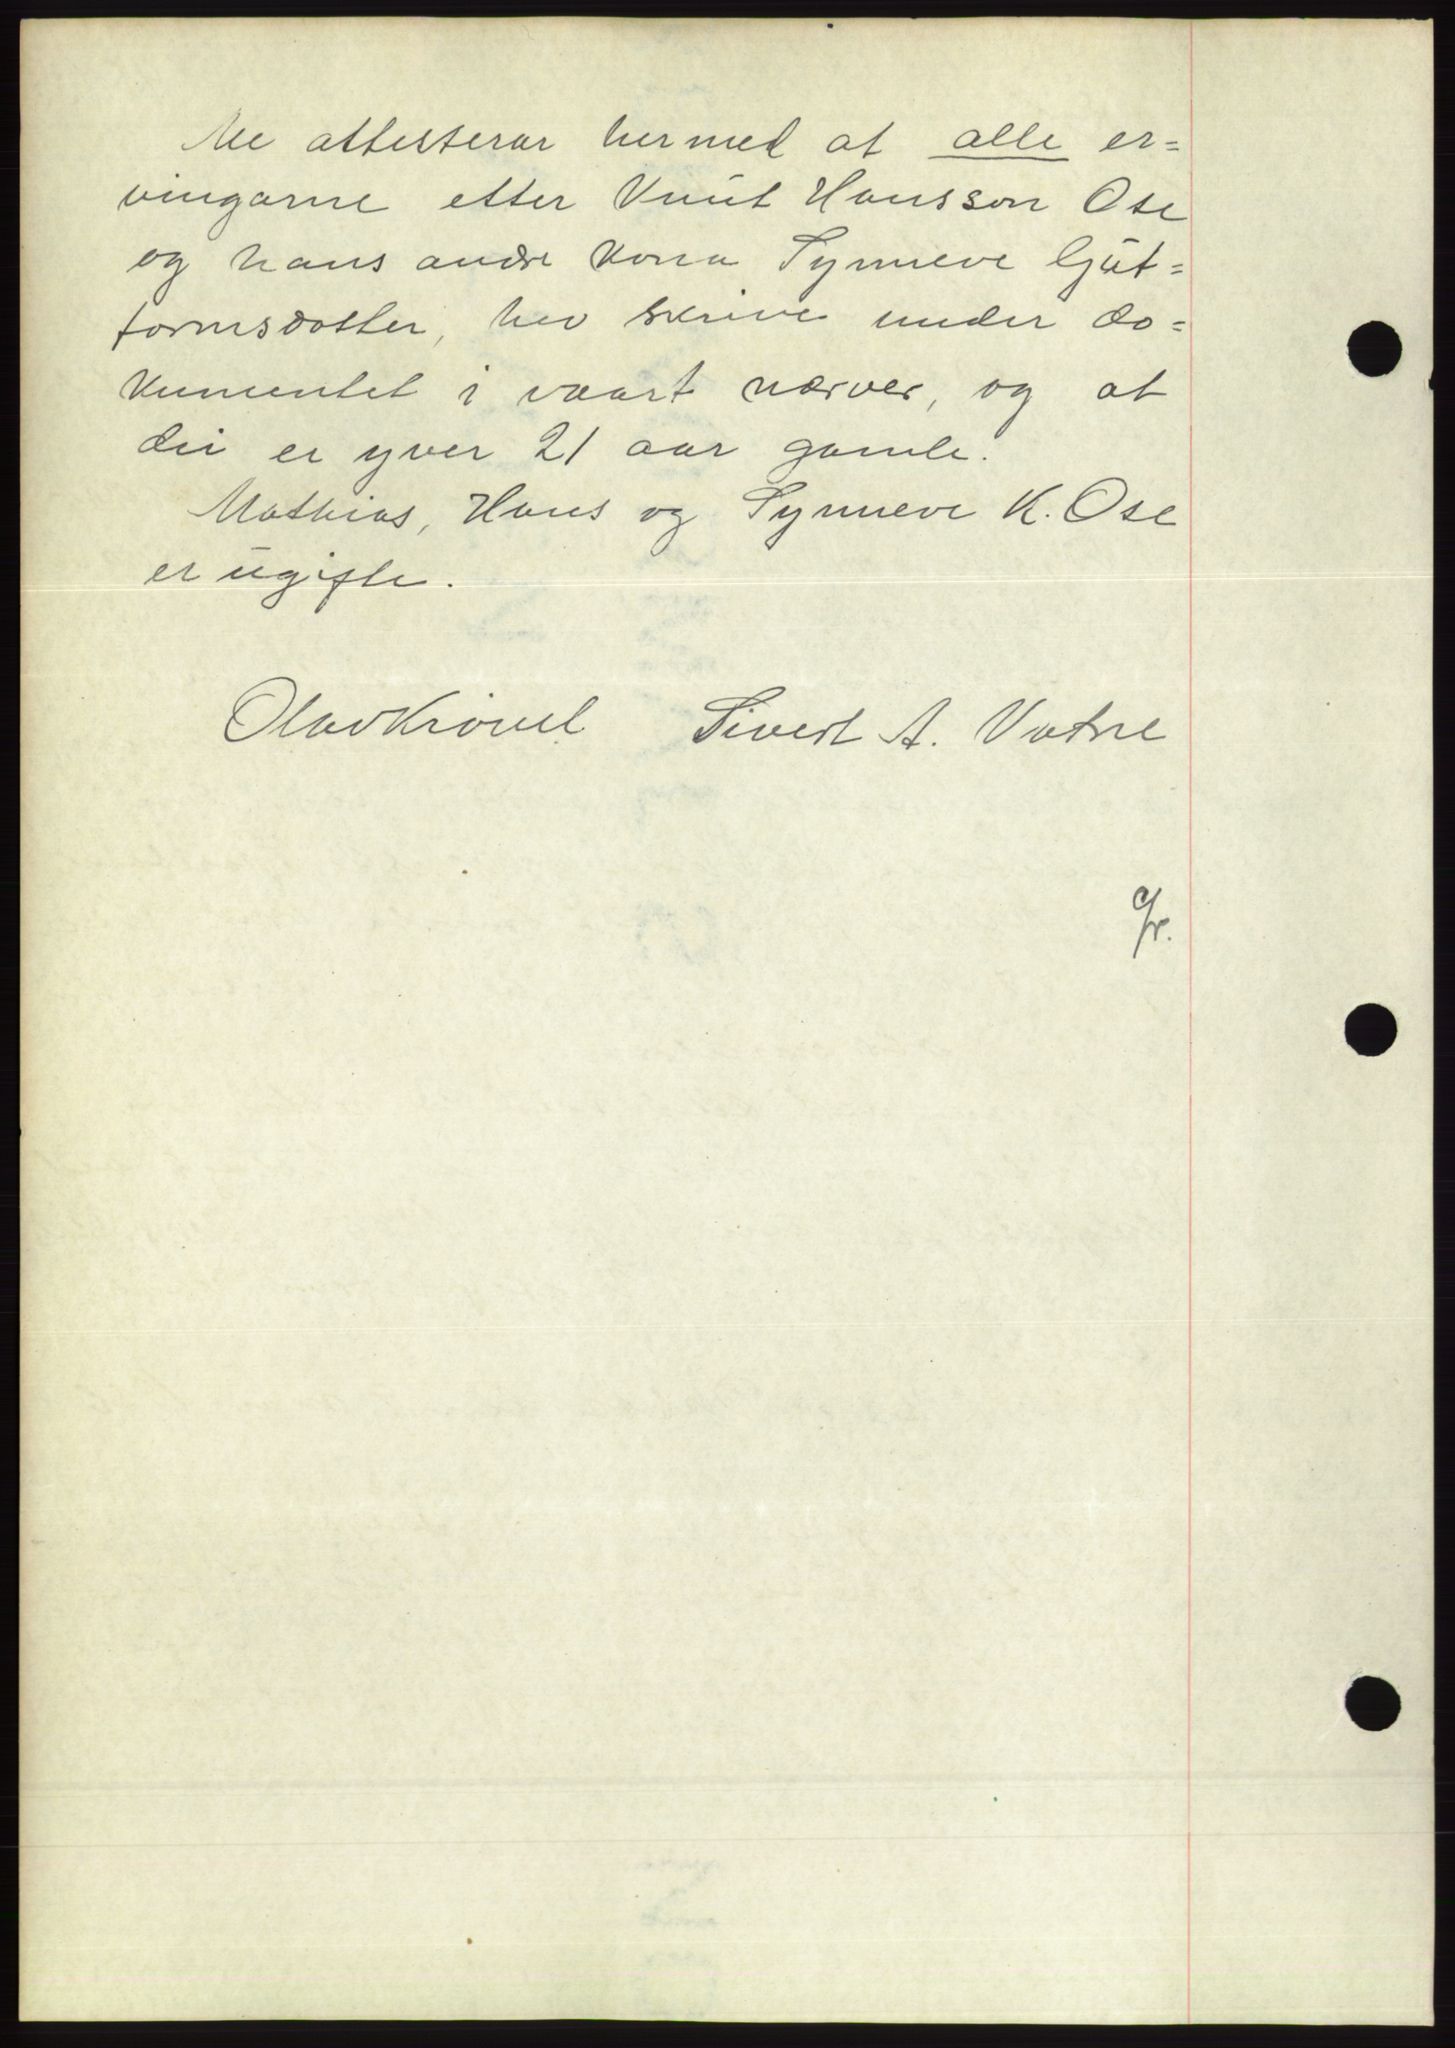 Me attesterar hermed at alle er=
vingarne etter Knut Hansson Ose
og hans andre kona Synneve Gut=
tormsdotter, hev skrive under do=
kumentet i vaart nærver, og at
dei er yver 21 aar gamle.
Mathias, Hans og Synneve K. Ose
er ugifte.
Olav Krövel Sivert A. Vatne